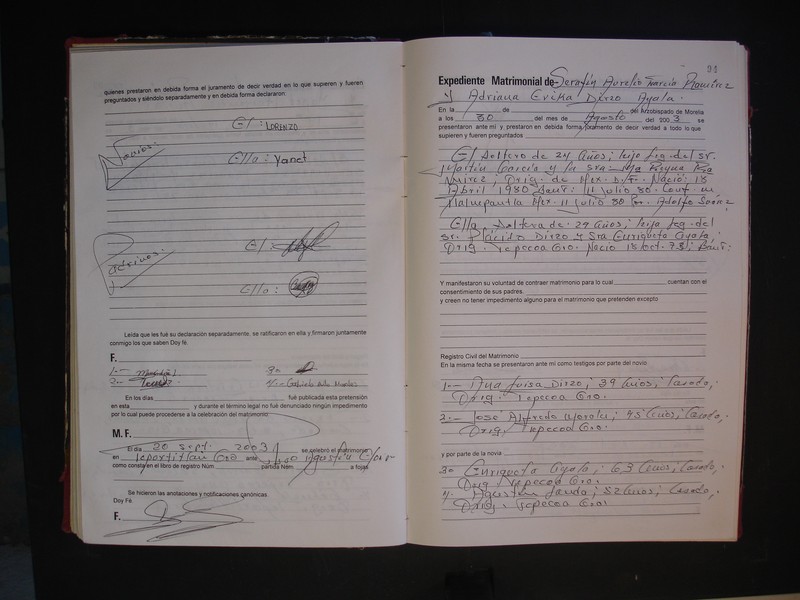 quienes prestaron en debida forma el juramento de decir verdad en lo que supieren y fueren
preguntados y siéndolo separadamente y en debida forma declararon
El : LORENZO
Novios.
Ella : Yanet
El :
Padrinos.
Ella :
Leída que les fué su declaración separadamente, se ratificaron en ella y firmaron juntamente
conmigo los que saben Doy fé.
F.
1.-
3.-
2.-
4.- Gabriela
En los días fué publicada esta pretensión
en esta y durante el término legal no fué denunciado ningún impedimento
por lo cual puede procederse a la celebración del matrimonio.
M. F.
El día 20 sept. 2003 se celebró el matrimonio
en ante Agustín
como consta en el libro de registro Núm. partida Núm. a fojas
Se hicieron las anotaciones y notificaciones canónicas.
Doy Fé
F.
91
Expediente Matrimonial de Serafín Aurelio García Ramírez
y Adriana Erika Dirzo Ayala.
En la de del Arzobispado de Morelia
a los 30 del mes de Agosto del 2003 se
presentaron ante mí y prestaron en debida forma juramento de decir verdad a todo lo que
supieren y fueren preguntados
El Soltero de 24 años; hijo leg. del sr.
Martín García y la sra.
Orig. de Mex. D.F. Nació: 18
Abril 1980 Baut: 11 julio 80. Conf. en
Tlalnepantla Mex. 11 julio 80 Adolfo
Ella Soltera de 29 años; hija leg. del
sr. Plácido Dirzo y Sra. Enriqueta Ayala;
Orig. Tepecoa Gro. Nacio 18 oct. 73; Baut:
Y manifestaron su voluntad de contraer matrimonio para lo cual cuentan con el
consentimiento de sus padres.
y creen no tener impedimento alguno para el matrimonio que pretenden excepto
Registro Civil del Matrimonio
En la misma fecha se presentaron ante mi como testigos por parte del novio
1.- Ana Luisa Dirzo, 39 años; Casado;
Orig. Tepecoa Gro.
2.- José Alfredo Morales; 45 años; Casado;
Orig. Tepecoa Gro.
y por parte de la novia
3.- Enriqueta Ayala; 63 años, Casado,
Orig. Tepecoa Gro.
4.- Agustín Landa; 52 años; Casado,
Orig. Tepecoa Gro.